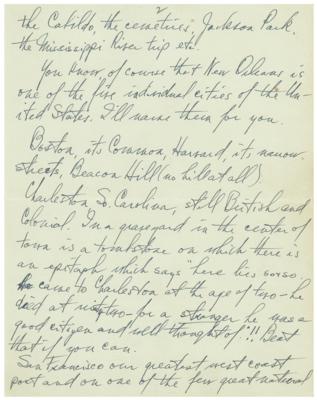 2
the Cabildo, the cemeteries, Jackson Park,
the Mississippi River trip etc.
You know, of course that New Orleans is
one of the five individual cities of the Un-
ited States. I'll name them for you.
Boston, its Common, Harvard, its narrow
streets, Beacon Hill (no hill at all)
Charleston So. Carolina, still British and
Colonial. In a graveyard in the center of
town is a tombstone on which there is
an epitaph which says "here lies so+so.
he came to Charleston at the age of two - he
died at ninety two - for a stranger he was a
good citizen and well thought of"!! Beat
that if you can.
San Francisco our greatest west coast
port and on one of the few great national